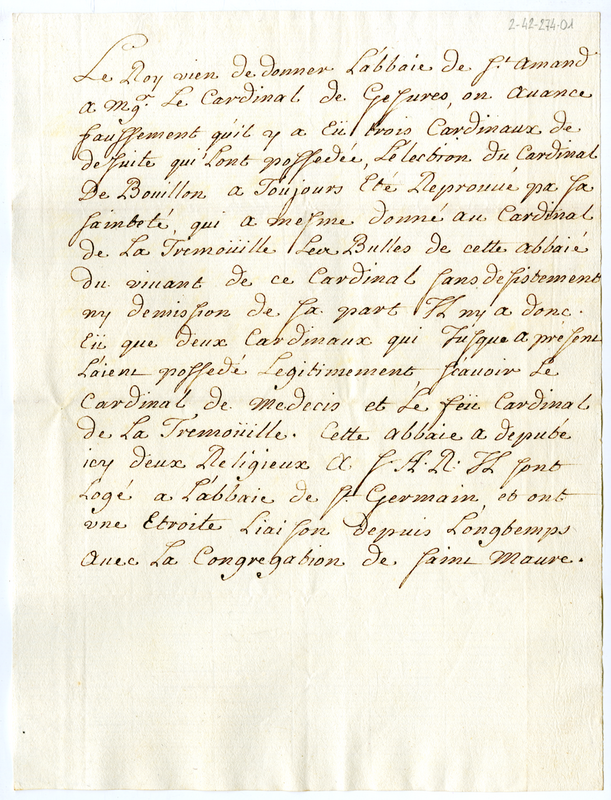 2-42-274-01
Le Roy vien de donner L'abbaie de St. Amand
a Mgr. Le Cardinal de Gesures, on auance
faussement qu'il y a Eü trois Cardinaux de
de suite qui Lont possedée, L'election du Cardinal
De Bouillon a Toujours Eté Reprouué pa sa
sainteté, qui a mesme donné au Cardinal
de La Tremoüille Les Bulles de cette abbaié
du viuant de ce Cardinal sans desistement
ny demission de sa part Il ny a donc.
Eü que deux Cardinaux qui Jusque a présent
L'aient possedé Legitimement sçauoir Le
Cardinal de Medecis et Le feü Cardinal
de La Tremoüille. Cette abbaie a deputé
icy deux Religieux A S. A. R. Il sont
Logé a L'abbaie de St. Germain et ont
vne Etroite Liaison depuis Longtemps
auec La Congregation de saint Maure.